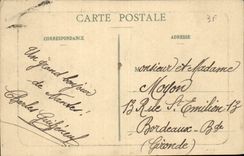 CARTE POSTALE
3F
CORRESPONDANCE
ADRESSE
Un grand bonjour
de Nantes
Monsieur et Madame
Moyon
13 Rue St Emilion 13
Bordeaux - Bde
(Gironde)